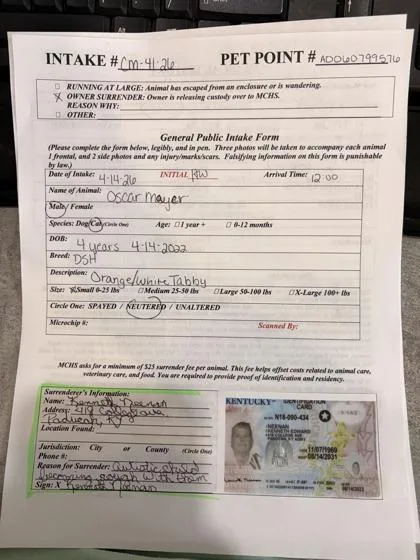 INTAKE # CM-41-26 PET POINT # A060799576
□ RUNNING AT LARGE: Animal has escaped from an enclosure or is wandering.
X OWNER SURRENDER: Owner is releasing custody over to MCHS.
REASON WHY:
□ OTHER:
General Public Intake Form
(Please complete the form below, legibly, and in pen. Three photos will be taken to accompany each animal
1 frontal, and 2 side photos and any injury/marks/scars. Falsifying information on this form is punishable
by law.)
Date of Intake: 4-14-26 INITIAL KW Arrival Time: 12:00
Name of Animal: Oscar Mayer
Male / Female
Species: Dog/Cat (Circle One) Age: □ 1 year + □ 0-12 months
DOB: 4 years 4-14-2022
Breed: DSH
Description: Orange/White Tabby
Size: X Small 0-25 lbs □ Medium 25-50 lbs □ Large 50-100 lbs □ X-Large 100+ lbs
Circle One: SPAYED / NEUTERED / UNALTERED
Microchip #: Scanned By:
MCHS asks for a minimum of $25 surrender fee per animal. This fee helps offset costs related to animal care,
veterinary care, and food. You are required to provide proof of identification and residency.
Surrenderer's Information:
Name: Kenneth Keenan
Address: 418 College Ave
Paducah, KY
Location Found:
Jurisdiction: City or County (Circle One)
Phone #:
Reason for Surrender: Autistic child
becoming rough with them
Sign: X Kenneth Keenan
KENTUCKY IDENTIFICATION
CARD
N18-090-434
KENNETH EDWARD
11/07/1969
08/14/2031